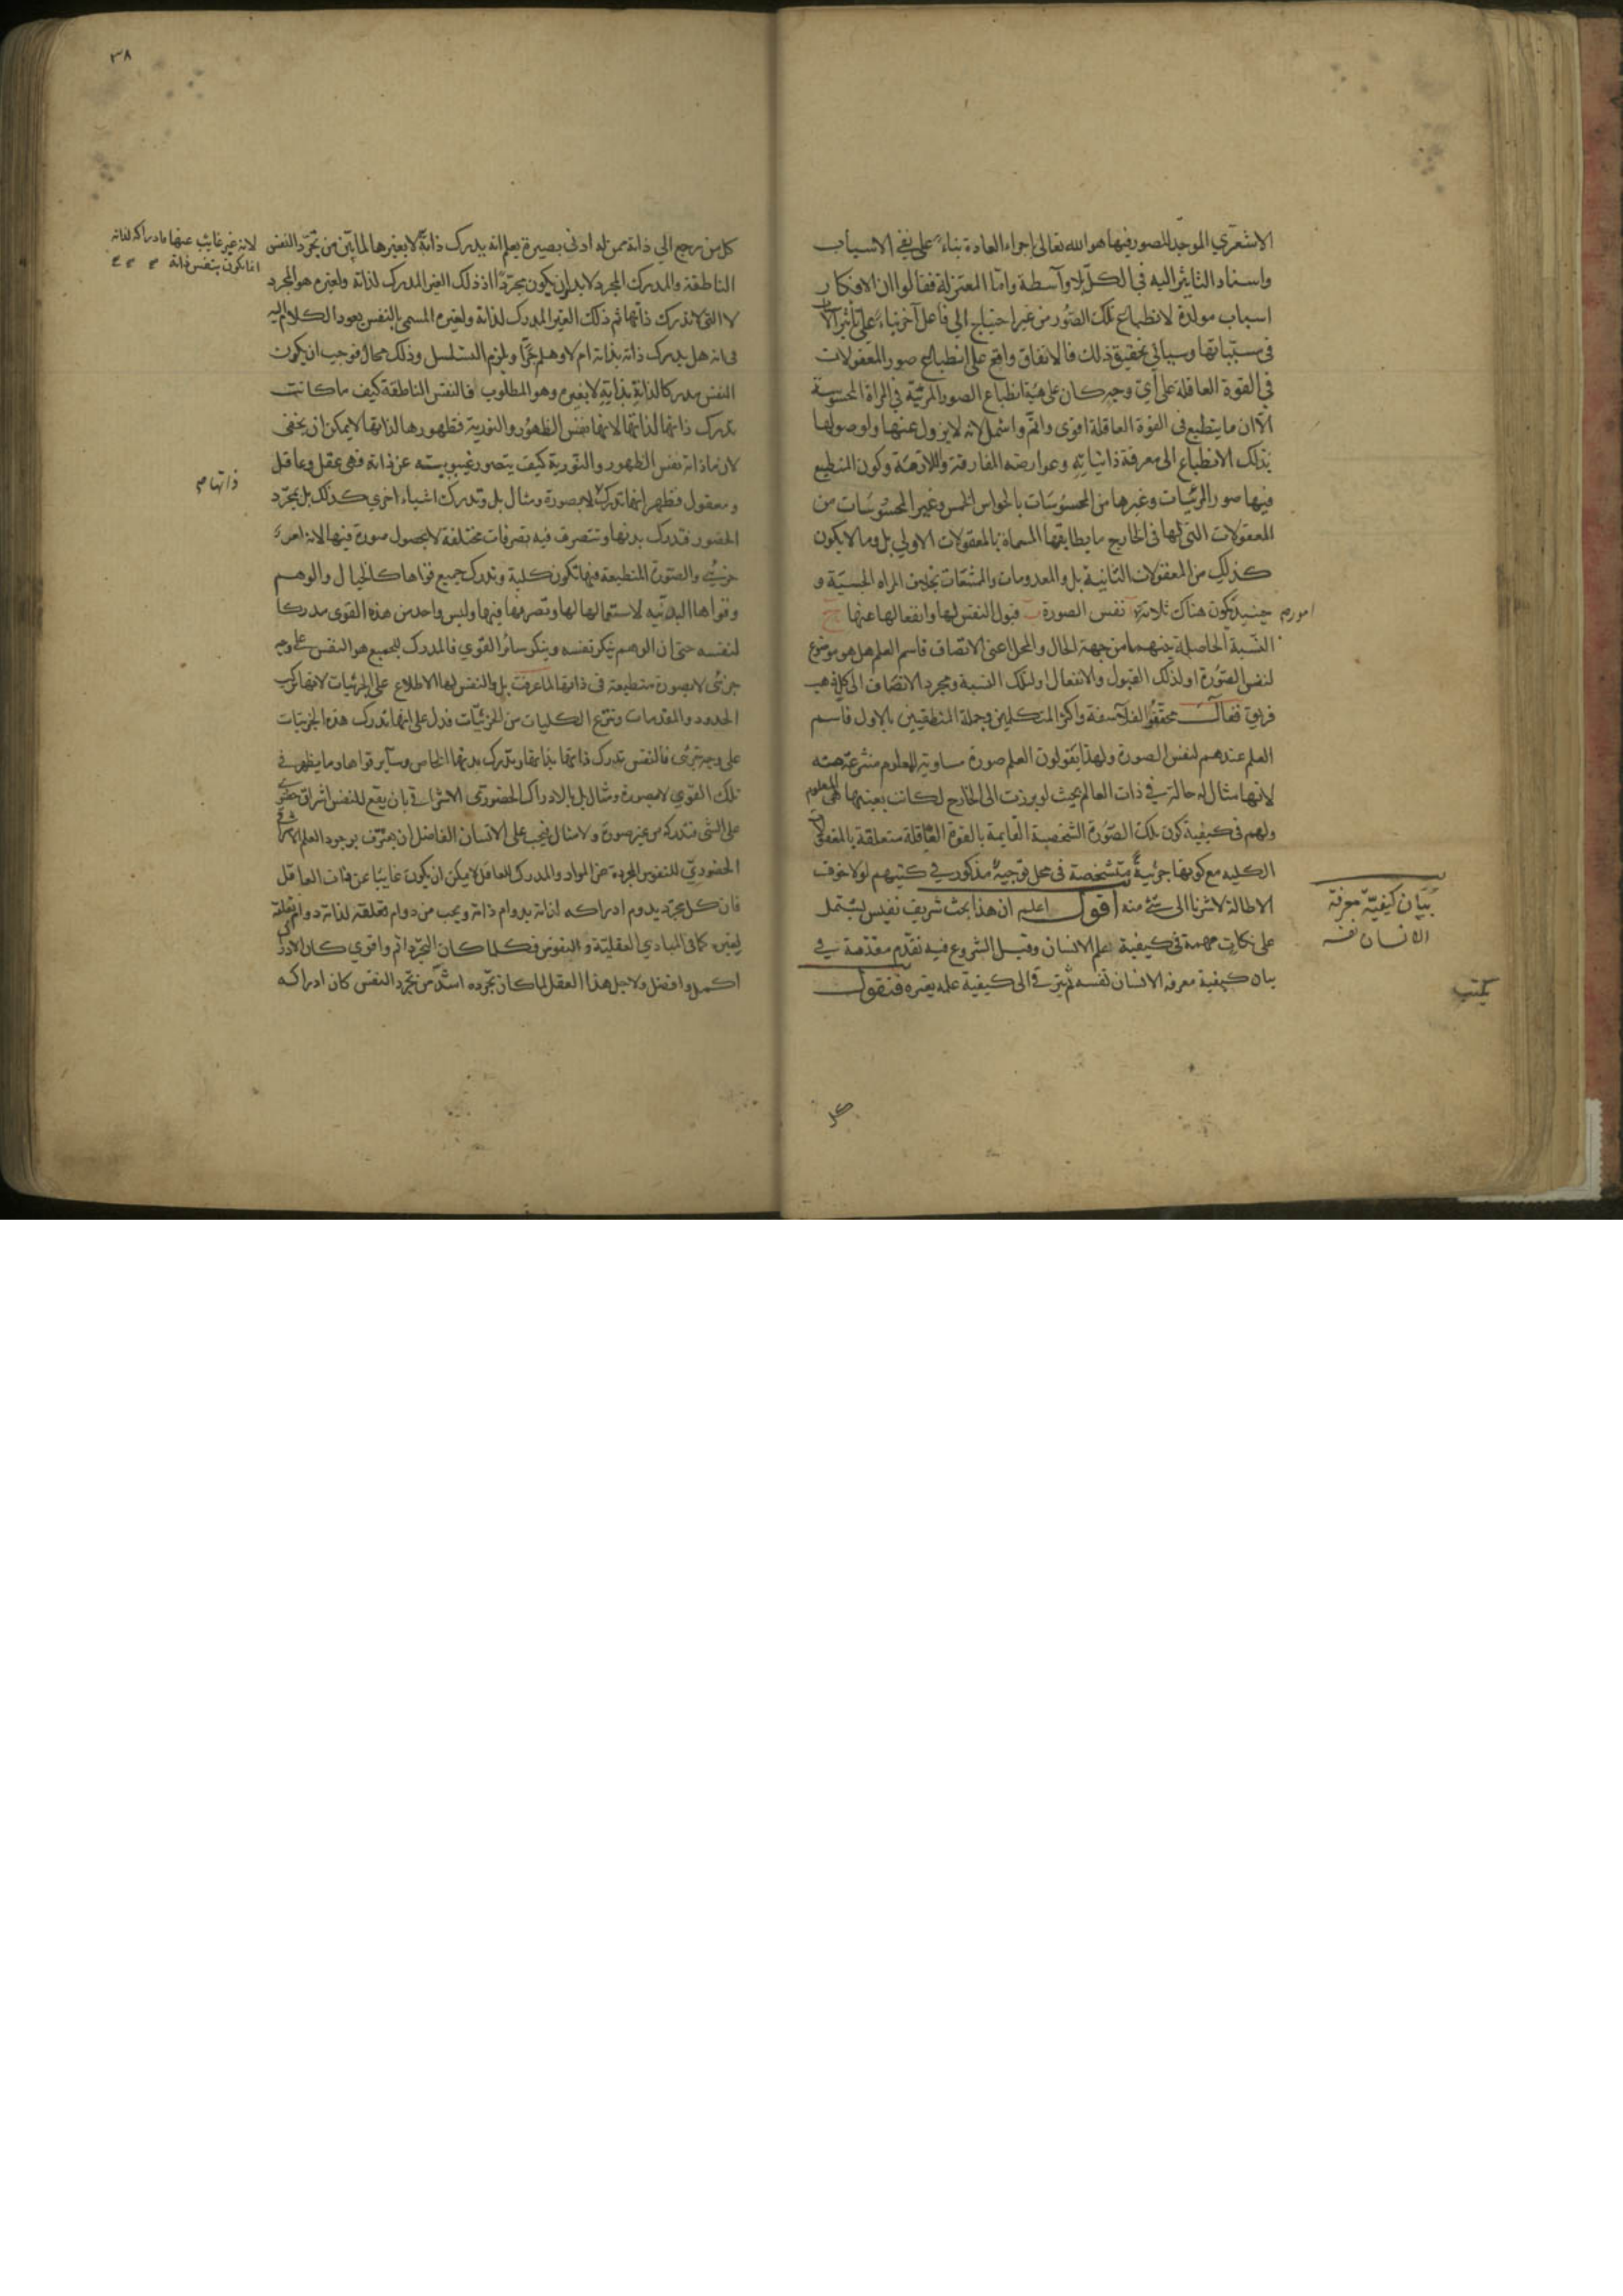 الاشعري الموجد للصور فيها هو الله تعالى باجراء العادة بناء على نفي الاسباب
واسناد التاثير اليه في الكل بلا واسطة واما المعتزلة فقالوا ان الافكار
اسباب مولدة لانطباع تلك الصور من غير احتياج الي فاعل آخر بناء على تاثير
في مسبباتها وسياتي تحقيق ذلك فالاتفاق واقع على انطباع صور المعقولات
في القوة العاقلة على أي وجه كان على هيئة انطباع الصور المرئية في المرآة المحسوسة
الا ان ما ينطبع في القوة العاقلة اقوى واتم واشمل لانه لا يزول عنها ولوصولها
بذلك الانطباع الى معرفة ذاتياته وعوارضه المفارقة واللازمة وكون المنطبع
فيها صور المرئيات وغيرها من المحسوسات بالحواس الخمس وغير المحسوسات من
المعقولات التي لها في الخارج ما يطابقها المسماة بالمعقولات الاولي بل وما لا يكون
كذلك من المعقولات الثانية بل والمعدومات والممتنعات بخلاف المراه الحسية و
امور حينيذ يكون هناك ثلاثة نفس الصورة ب قبول النفس لها وانفعالها عنها ج
النسبة الحاصلة بينهما من جهة الحال والمحل اعني الاتصاف فاسم العلم هل هو موضوع
لنفس الصورة او لذلك القبول والانفعال او لتلك النسبة ومجرد الاتصاف الى كل ذهب
فريق فقال محققوا الفلاسفة واكثر المتكلمين وجملة المنطقيين بالاول فاسم
العلم عندهم لنفس الصورة ولهذا يقولون العلم صورة مساوية للمعلوم منتزعة منه
لانها مثال له حالة في ذات العالم بحيث لو برزت الى الخارج لكانت بعينها هي المعلوم
ولهم في كيفية كون تلك الصورة الشخصية القايمة بالقوة العاقلة متعلقة بالمعقولات
الكليه مع كونها جزئية متشخصة في محل توجيه مذكور في كتبهم لولا خوف
الاطالة لاشرنا الى شئ منه اقول اعلم ان هذا بحث شريف نفيس يشتمل
على نكات مهمة في كيفية علم الانسان وقبل الشروع فيه نقدم مقدمة في
بيان كيفية معرفة الانسان نفسه ثم يترقي الى كيفية علمه بغيره فنقول
بيان كيفية معرفة
الانسان نفسه
كل
٣٨
كل من رجع الي ذاته ممن له ادنى بصيرة يعلم انه يدرك ذاته لا بغيرها لما بين من تجرد النفس
لانه غير غايب عنها فادراكه لذاته
انما يكون بنفس ذاته
الناطقة والمدرك المجرد لا بد ان يكون مجردا اذ ذلك الغير المدرك لذاته ولغيره هو المجرد
لا التي لا تدرك ذاتها ثم ذلك الغير المدرك لذاته ولغيره المسمى بالنفس يعود الكلام اليه
في انه هل يدرك ذاته بذاته ام لا وهلم جرا ويلزم التسلسل وذلك محال فوجب ان يكون
النفس مدركا لذاته بذاته لا بغيره وهو المطلوب فالنفس الناطقة كيف ما كانت
تدرك ذاتها لذاتها لانها نفس الظهور والنورية فظهورها لذاتها لا يمكن ان يخفى
لان ما ذاته نفس الظهور والنورية كيف يتصور غيبوبيته عن ذاته فهي عقل وعاقل
ومعقول فظهر انها تدرك لا بصورة ومثال بل وتدرك اشياء اخرى كذلك بل بمجرد
ذاتها
الحضور فتدرك بدنها وتتصرف فيه تصرفات مختلفة لا بحصول صورة فيها لانه امر
جزئي والصورة المنطبعة فيها تكون كلية وتدرك جميع قواها كالخيال والوهم
وقواها البدنية لاستعمالها لها وتصرفها فيها وليس واحد من هذه القوى مدركا
لنفسه حتى ان الوهم ينكر نفسه وينكر سائر القوي فالمدرك للجميع هو النفس على وجه
جزئي لا بصورة منطبعة في ذاتها لما عرفت بل والنفس لها الاطلاع على الجزئيات لانها تركب
الحدود والمقدمات وتنتزع الكليات من الجزئيات فدل على انها تدرك هذه الجزئيات
على وجه جزئي فالنفس تدرك ذاتها بذاتها وتدرك بدنها الخاص وسآير قواها وما يظهر في
تلك القوي لا بصورة ومثال بل بالادراك الحضوري الاشراقي بان يقع للنفس اشراق حضوري
على الشئ فتدركه من غير صورة ولا مثال فيجب على الانسان الفاضل ان يعترف بوجود العلم الاشراقي
الحضوري للنفوس المجردة عن المواد والمدرك للعاقل لا يمكن ان يكون غايبا عن ذات العاقل
فان كل مجرد يدوم ادراكه لذاته بدوام ذاته ويجب من دوام تعلقه لذاته دوام تعلقه
لغيره كما في المبادي العقلية والنفوس فكلما كان التجرد اتم واقوي كان الادراك
اكمل وافضل ولاجل هذا العقل لما كان تجرده اشد من تجرد النفس كان ادراكه